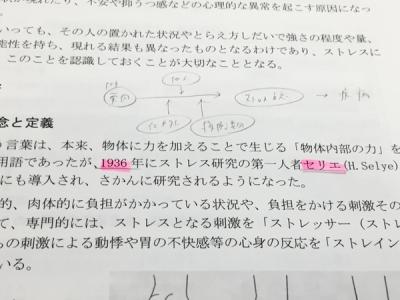 が現れたり、不安や抑うつ感などの心理的な異常を起こす原因になっ
いっても、その人の置かれた状況やとらえ方しだいで強さの程度や量、
能性を持ち、現れる結果も異なったものとなるわけであり、ストレスに
、このことを認識しておくことが大切なこととなる。
念と定義
言葉は、本来、物体に力を加えることで生じる「物体内部の力」を
用語であったが、1936年にストレス研究の第一人者セリエ(H.Selye)
にも導入され、さかんに研究されるようになった。
的、肉体的に負担がかかっている状況や、負担をかける刺激その
て、専門的には、ストレスとなる刺激を「ストレッサー（スト
らの刺激による動悸や胃の不快感等の心身の反応を「ストレイン
いる。